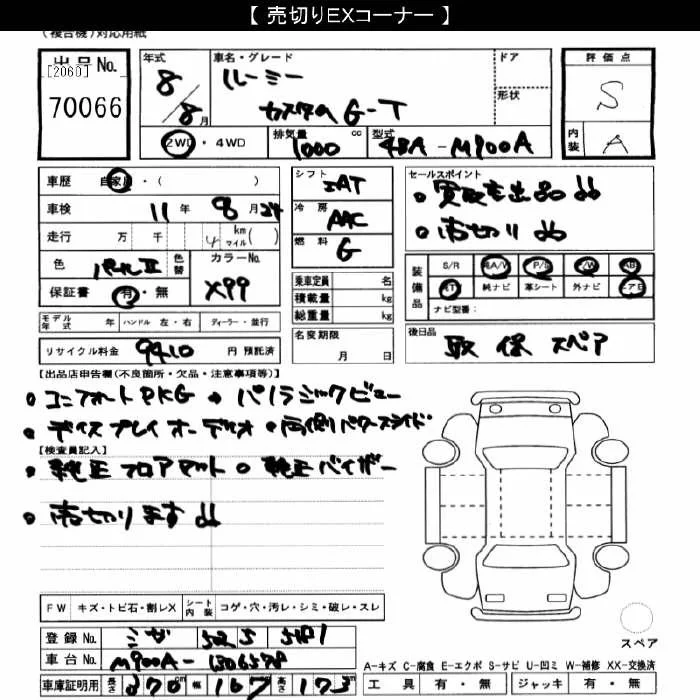 【 売切りEXコーナー 】
(複合機)対応用紙
出品No.
[2060]
70066
年式 8/8月
車名・グレード
ルーミー
カスタムG-T
ドア
形状
評価点
S
内装 A
2WD・4WD
排気量 1000 cc
型式 4BA-M900A
車歴 自家用・( )
車検 11年 8月24
走行 万 千 4 km マイル( )
色 パールII 色替
カラーNo. X99
保証書 有・無
シフト IAT
冷房 AAC
燃料 G
乗車定員 名
積載量 kg
総重量 kg
セールスポイント
・買取車出品!!
・売切り!!
装備品 S/R AA/W P/S P/W AB
RTV 純ナビ 革シート 外ナビ エアB
ナビ型番:
モデル年式 年 ハンドル 左・右 ディーラー・並行
名変期限 月 日
後日品
取 保 スペア
リサイクル料金 9410 円 預託済
【出品店申告欄(不良箇所・欠品・注意事項等)】
・コンフォートPKG ・パノラミックビュー
・ディスプレイオーディオ ・両側パワースライド
【検査員記入】
・純正フロアマット ・純正バイザー
・売切ります!!
FW キズ・トビ石・割レX シート内装 コゲ・穴・汚レ・シミ・破レ・スレ
登録No.
車台No. M900A-
スペア
A-キズ C-腐食 E-エクボ S-サビ U-凹ミ W-補修 XX-交換済
車庫証明用 長さ 370 cm 幅 167 高さ 173
工具 有・無 ジャッキ 有・無